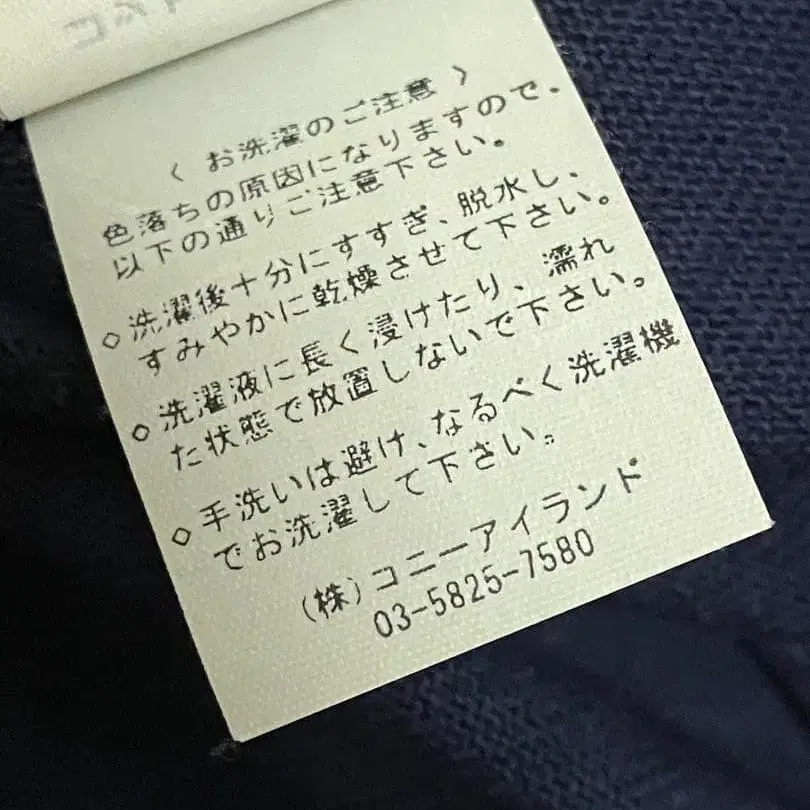 〈 お洗濯のご注意 〉
色落ちの原因になりますので、
以下の通りご注意下さい。
◇ 洗濯後十分にすすぎ、脱水し、
すみやかに乾燥させて下さい。
◇ 洗濯液に長く浸けたり、濡れ
た状態で放置しないで下さい。
◇ 手洗いは避け、なるべく洗濯機
でお洗濯して下さい。
(株)コニーアイランド
03-5825-7580